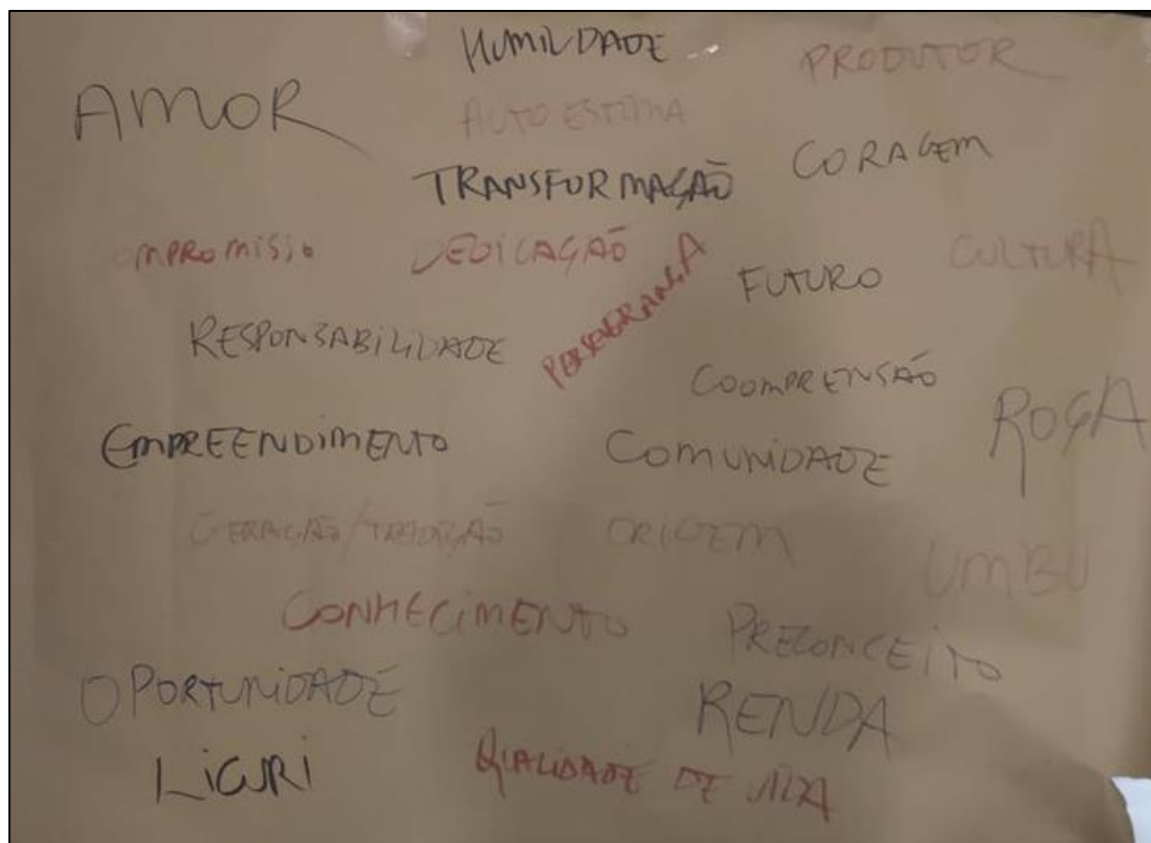 HUMILDADE
PRODUTOR
AMOR
AUTO ESTIMA
CORAGEM
TRANSFORMAÇÃO
COMPROMISSO
DEDICAÇÃO
PERSEVERANÇA
FUTURO
CULTURA
RESPONSABILIDADE
COOMPRENSÃO
ROÇA
EMPREENDIMENTO
COMUNIDADE
GERAÇÃO/TRADIÇÃO
ORIGEM
UMBU
CONHECIMENTO
PRECONCEITO
OPORTUNIDADE
RENDA
LICURI
QUALIDADE DE VIDA